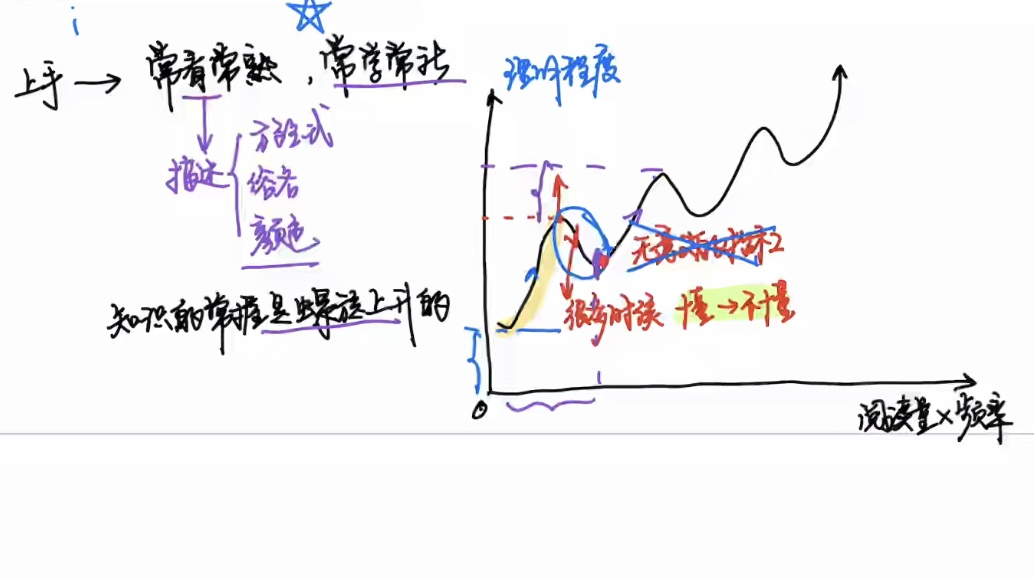 i
上手 → 常看常熟，常学常新
描述
方程式
俗名
颜色
知识的掌握是螺旋上升的
理解程度
很多时候 懂→不懂
0
阅读量×频率